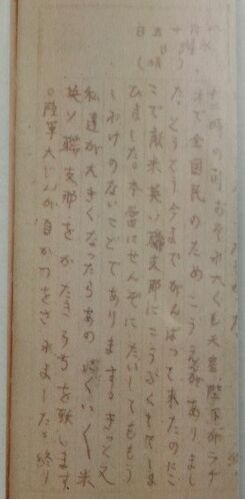 十二時の前おそれ大くも天皇陛下がラヂ
オで全国民のためこうえんがありまし
た。とうとう今までがんばって来たのにこ
こで敵米英ソ聯支那にこうふくをしてしま
ひました。本當にせんぞにたいしてももう
しわけのないことであります。きっと又
私達が大きくなったらあのにくい〱米
英ソ聯支那をかたきうちを致します。
○陸軍大じんが自かつをされました。終り